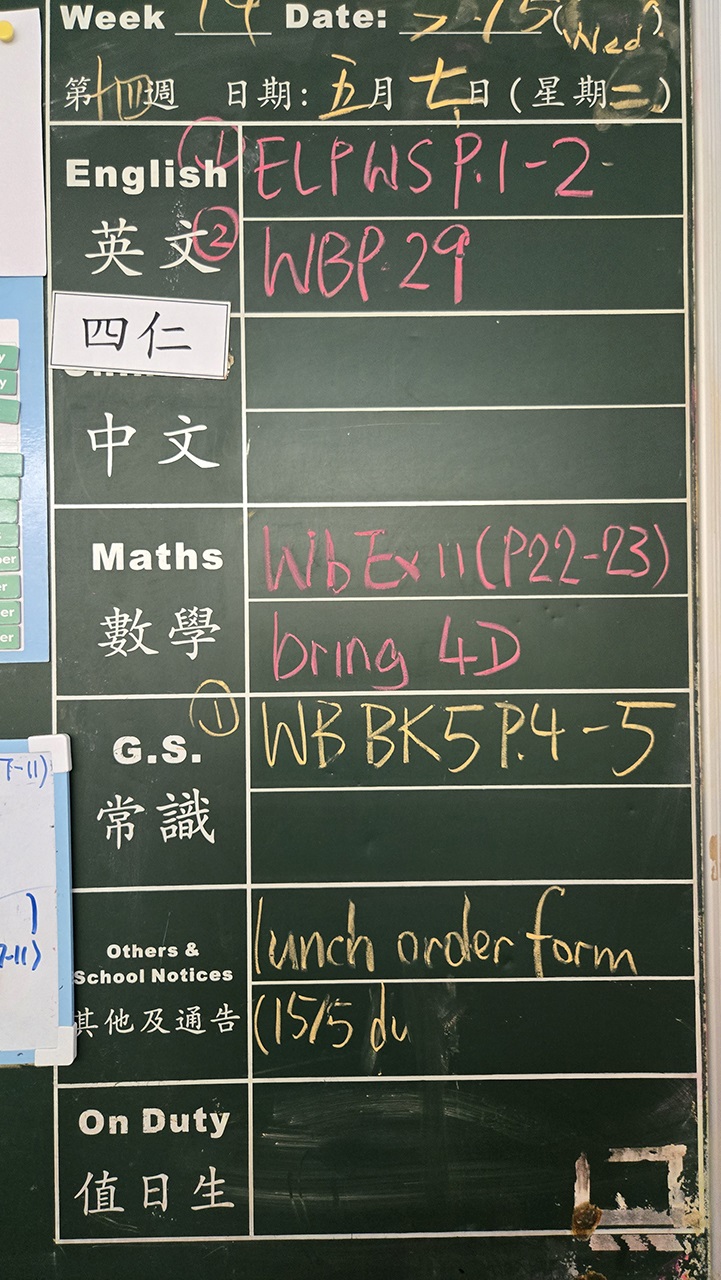 Week 14 Date: 7.15 (Wed)
第十四週 日期: 五月七日 (星期三)
English ① ELPWS P.1-2
英文 ② WBP. 29
四仁
中文
Maths WbEx11(P22-23)
數學 bring 4D
G.S. ① WB BK5 P.4-5
常識
Others & School Notices lunch order form
其他及通告 (15/5 du
On Duty
值日生
7-11)
)
7-11)
y
y
er
er
er